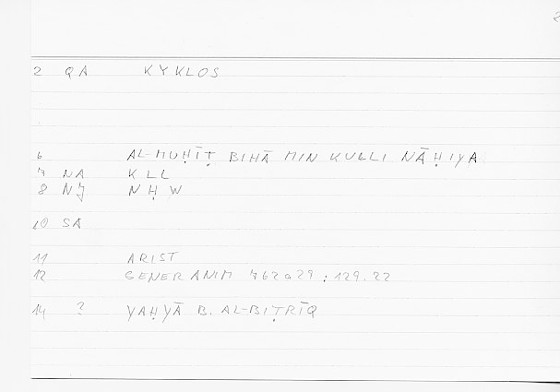 2 QA KYKLOS
6 AL-MUḤĪṬ BIHĀ MIN KULLI NĀḤIYA
7 NA KLL
8 NJ NḤW
10 SA
11 ARIST
12 GENER ANIM 762a29 : 129.22
14 ? YAḤYĀ B. AL-BIṬRĪQ